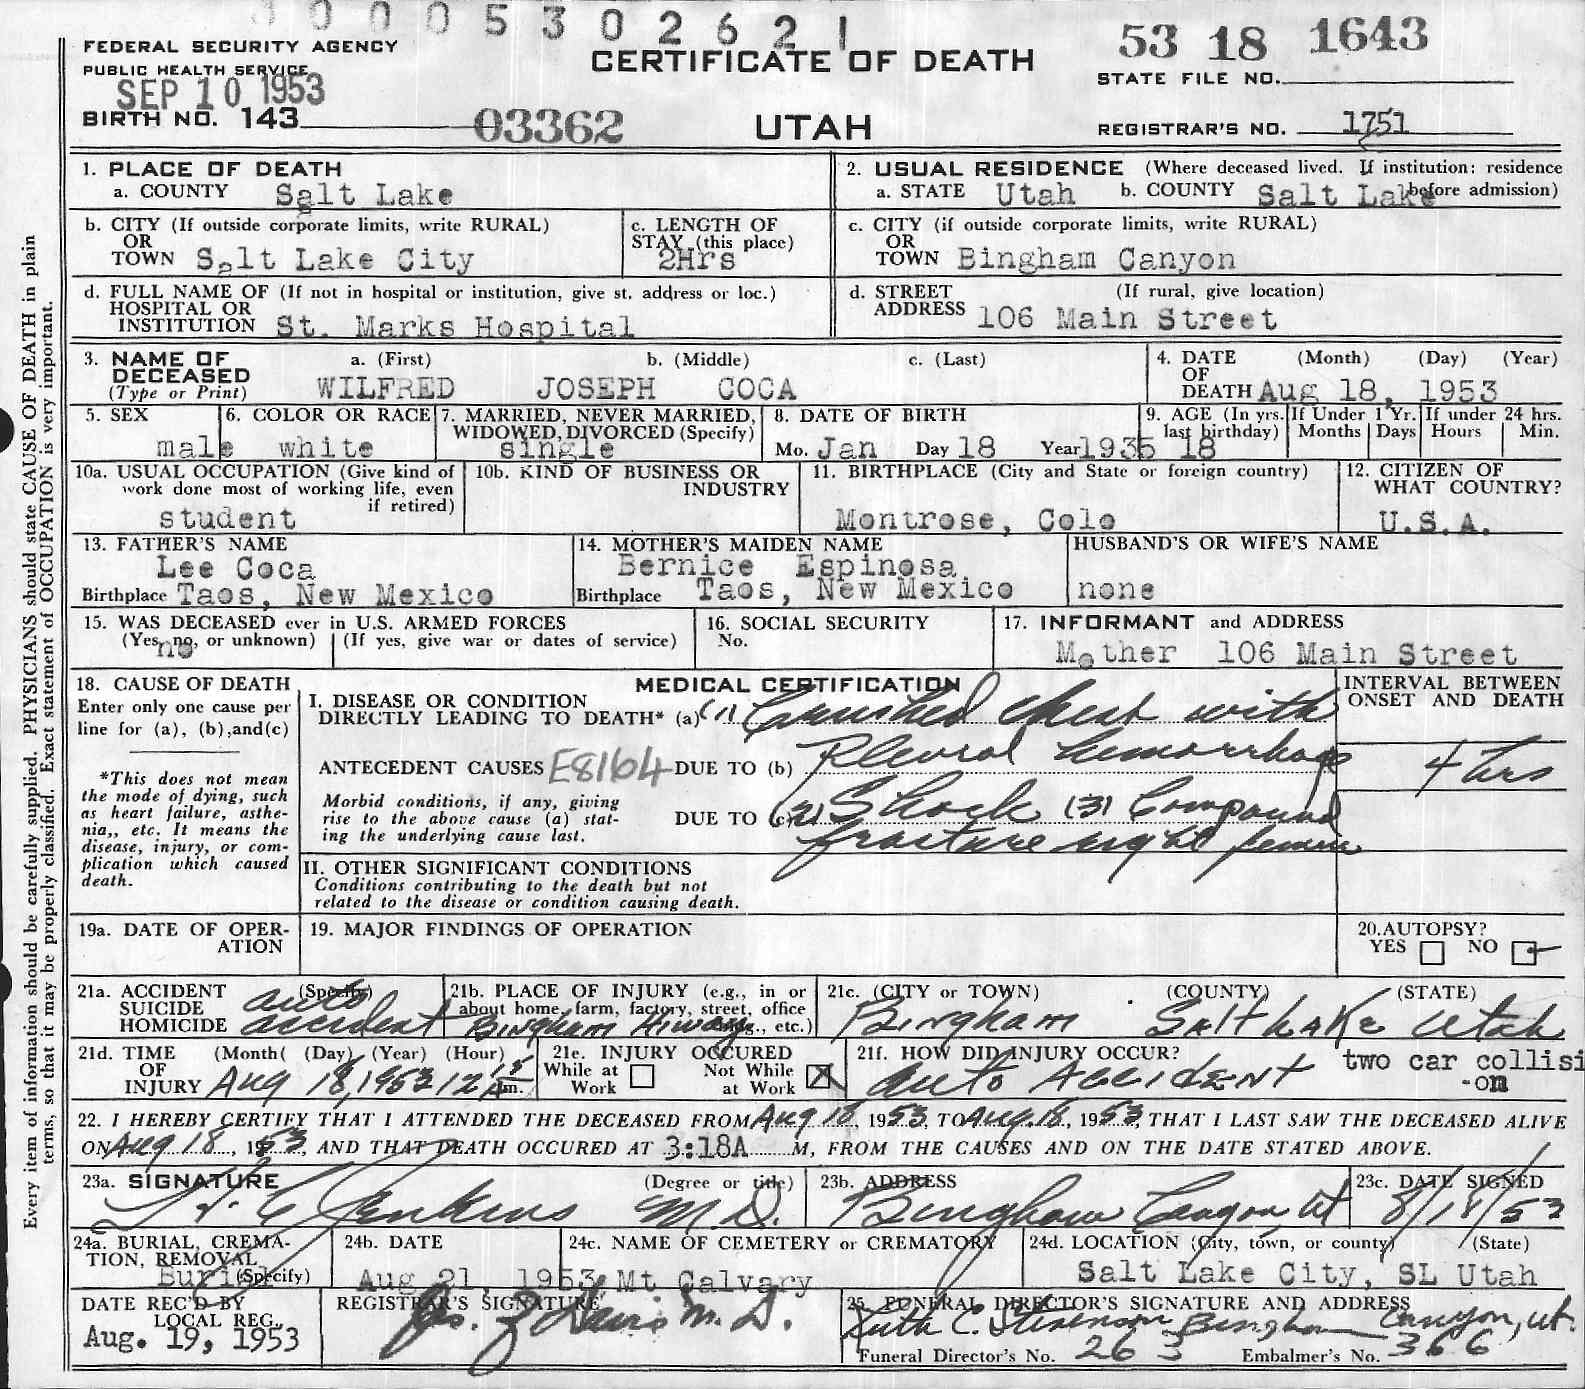 0 0 0 5 3 0 2 6 2 1
FEDERAL SECURITY AGENCY
PUBLIC HEALTH SERVICE
SEP 10 1953
BIRTH NO. 143
03362
CERTIFICATE OF DEATH
UTAH
53 18 1643
STATE FILE NO.
REGISTRAR'S NO. 1751
1. PLACE OF DEATH
a. COUNTY Salt Lake
2. USUAL RESIDENCE (Where deceased lived. If institution: residence before admission)
a. STATE Utah b. COUNTY Salt Lake
b. CITY (If outside corporate limits, write RURAL)
OR
TOWN Salt Lake City
c. LENGTH OF
STAY (this place)
2Hrs
c. CITY (if outside corporate limits, write RURAL)
OR
TOWN Bingham Canyon
d. FULL NAME OF (If not in hospital or institution, give st. address or loc.)
HOSPITAL OR
INSTITUTION St. Marks Hospital
d. STREET (If rural, give location)
ADDRESS 106 Main Street
3. NAME OF DECEASED (Type or Print)
a. (First) b. (Middle) c. (Last)
WILFRED JOSEPH COCA
4. DATE (Month) (Day) (Year)
OF
DEATH Aug 18, 1953
5. SEX
male
6. COLOR OR RACE
white
7. MARRIED, NEVER MARRIED,
WIDOWED, DIVORCED (Specify)
single
8. DATE OF BIRTH
Mo. Jan Day 18 Year 1935
9. AGE (In yrs. last birthday)
18
If Under 1 Yr.
Months Days
If under 24 hrs.
Hours Min.
10a. USUAL OCCUPATION (Give kind of
work done most of working life, even
if retired)
student
10b. KIND OF BUSINESS OR
INDUSTRY
11. BIRTHPLACE (City and State or foreign country)
Montrose, Colo
12. CITIZEN OF
WHAT COUNTRY?
U.S.A.
13. FATHER'S NAME
Lee Coca
Birthplace Taos, New Mexico
14. MOTHER'S MAIDEN NAME
Bernice Espinosa
Birthplace Taos, New Mexico
HUSBAND'S OR WIFE'S NAME
none
15. WAS DECEASED ever in U.S. ARMED FORCES
(Yes, no, or unknown) (If yes, give war or dates of service)
no
16. SOCIAL SECURITY
No.
17. INFORMANT and ADDRESS
Mother 106 Main Street
18. CAUSE OF DEATH
Enter only one cause per
line for (a), (b),and(c)
*This does not mean
the mode of dying, such
as heart failure, asthe-
nia,, etc. It means the
disease, injury, or com-
plication which caused
death.
MEDICAL CERTIFICATION
I. DISEASE OR CONDITION
DIRECTLY LEADING TO DEATH* (a) (1) Crushed chest with
ANTECEDENT CAUSES E8164 DUE TO (b) Pleural hemorrhage
Morbid conditions, if any, giving
rise to the above cause (a) stat-
ing the underlying cause last.
DUE TO (c) (2) Shock (3) Compound
fracture right femur
INTERVAL BETWEEN
ONSET AND DEATH
4 hrs
II. OTHER SIGNIFICANT CONDITIONS
Conditions contributing to the death but not
related to the disease or condition causing death.
19a. DATE OF OPER-
ATION
19. MAJOR FINDINGS OF OPERATION
20.AUTOPSY?
YES NO
21a. ACCIDENT (Specify)
SUICIDE
HOMICIDE
auto
accident
21b. PLACE OF INJURY (e.g., in or
about home, farm, factory, street, office
bldg., etc.)
Bingham Hiway
21c. (CITY or TOWN) (COUNTY) (STATE)
Bingham Salt Lake Utah
21d. TIME (Month( (Day) (Year) (Hour)
OF
INJURY Aug 18, 1953 12 15 m.
21e. INJURY OCCURED
While at Work Not While at Work
21f. HOW DID INJURY OCCUR?
Auto Accident two car collisi
-on
22. I HEREBY CERTIFY THAT I ATTENDED THE DECEASED FROM Aug 18, 1953, TO Aug. 18, 1953, THAT I LAST SAW THE DECEASED ALIVE
ON Aug 18, 1953, AND THAT DEATH OCCURED AT 3:18A M, FROM THE CAUSES AND ON THE DATE STATED ABOVE.
23a. SIGNATURE (Degree or title)
Jenkins M.D.
23b. ADDRESS
Bingham Canyon, Ut
23c. DATE SIGNED
8/18/53
24a. BURIAL, CREMA-
TION, REMOVAL
(Specify)
Burial
24b. DATE
Aug 21, 1953
24c. NAME OF CEMETERY or CREMATORY
Mt Calvary
24d. LOCATION (City, town, or county) (State)
Salt Lake City, SL Utah
DATE REC'D BY
LOCAL REG.
Aug. 19, 1953
REGISTRAR'S SIGNATURE
M. D.
25. FUNERAL DIRECTOR'S SIGNATURE AND ADDRESS
Ruth C. Stevenson Bingham Canyon, Ut.
Funeral Director's No. 263 Embalmer's No. 366
Every item of information should be carefully supplied. PHYSICIANS should state CAUSE OF DEATH in plain
terms, so that it may be properly classified. Exact statement of OCCUPATION is very important.